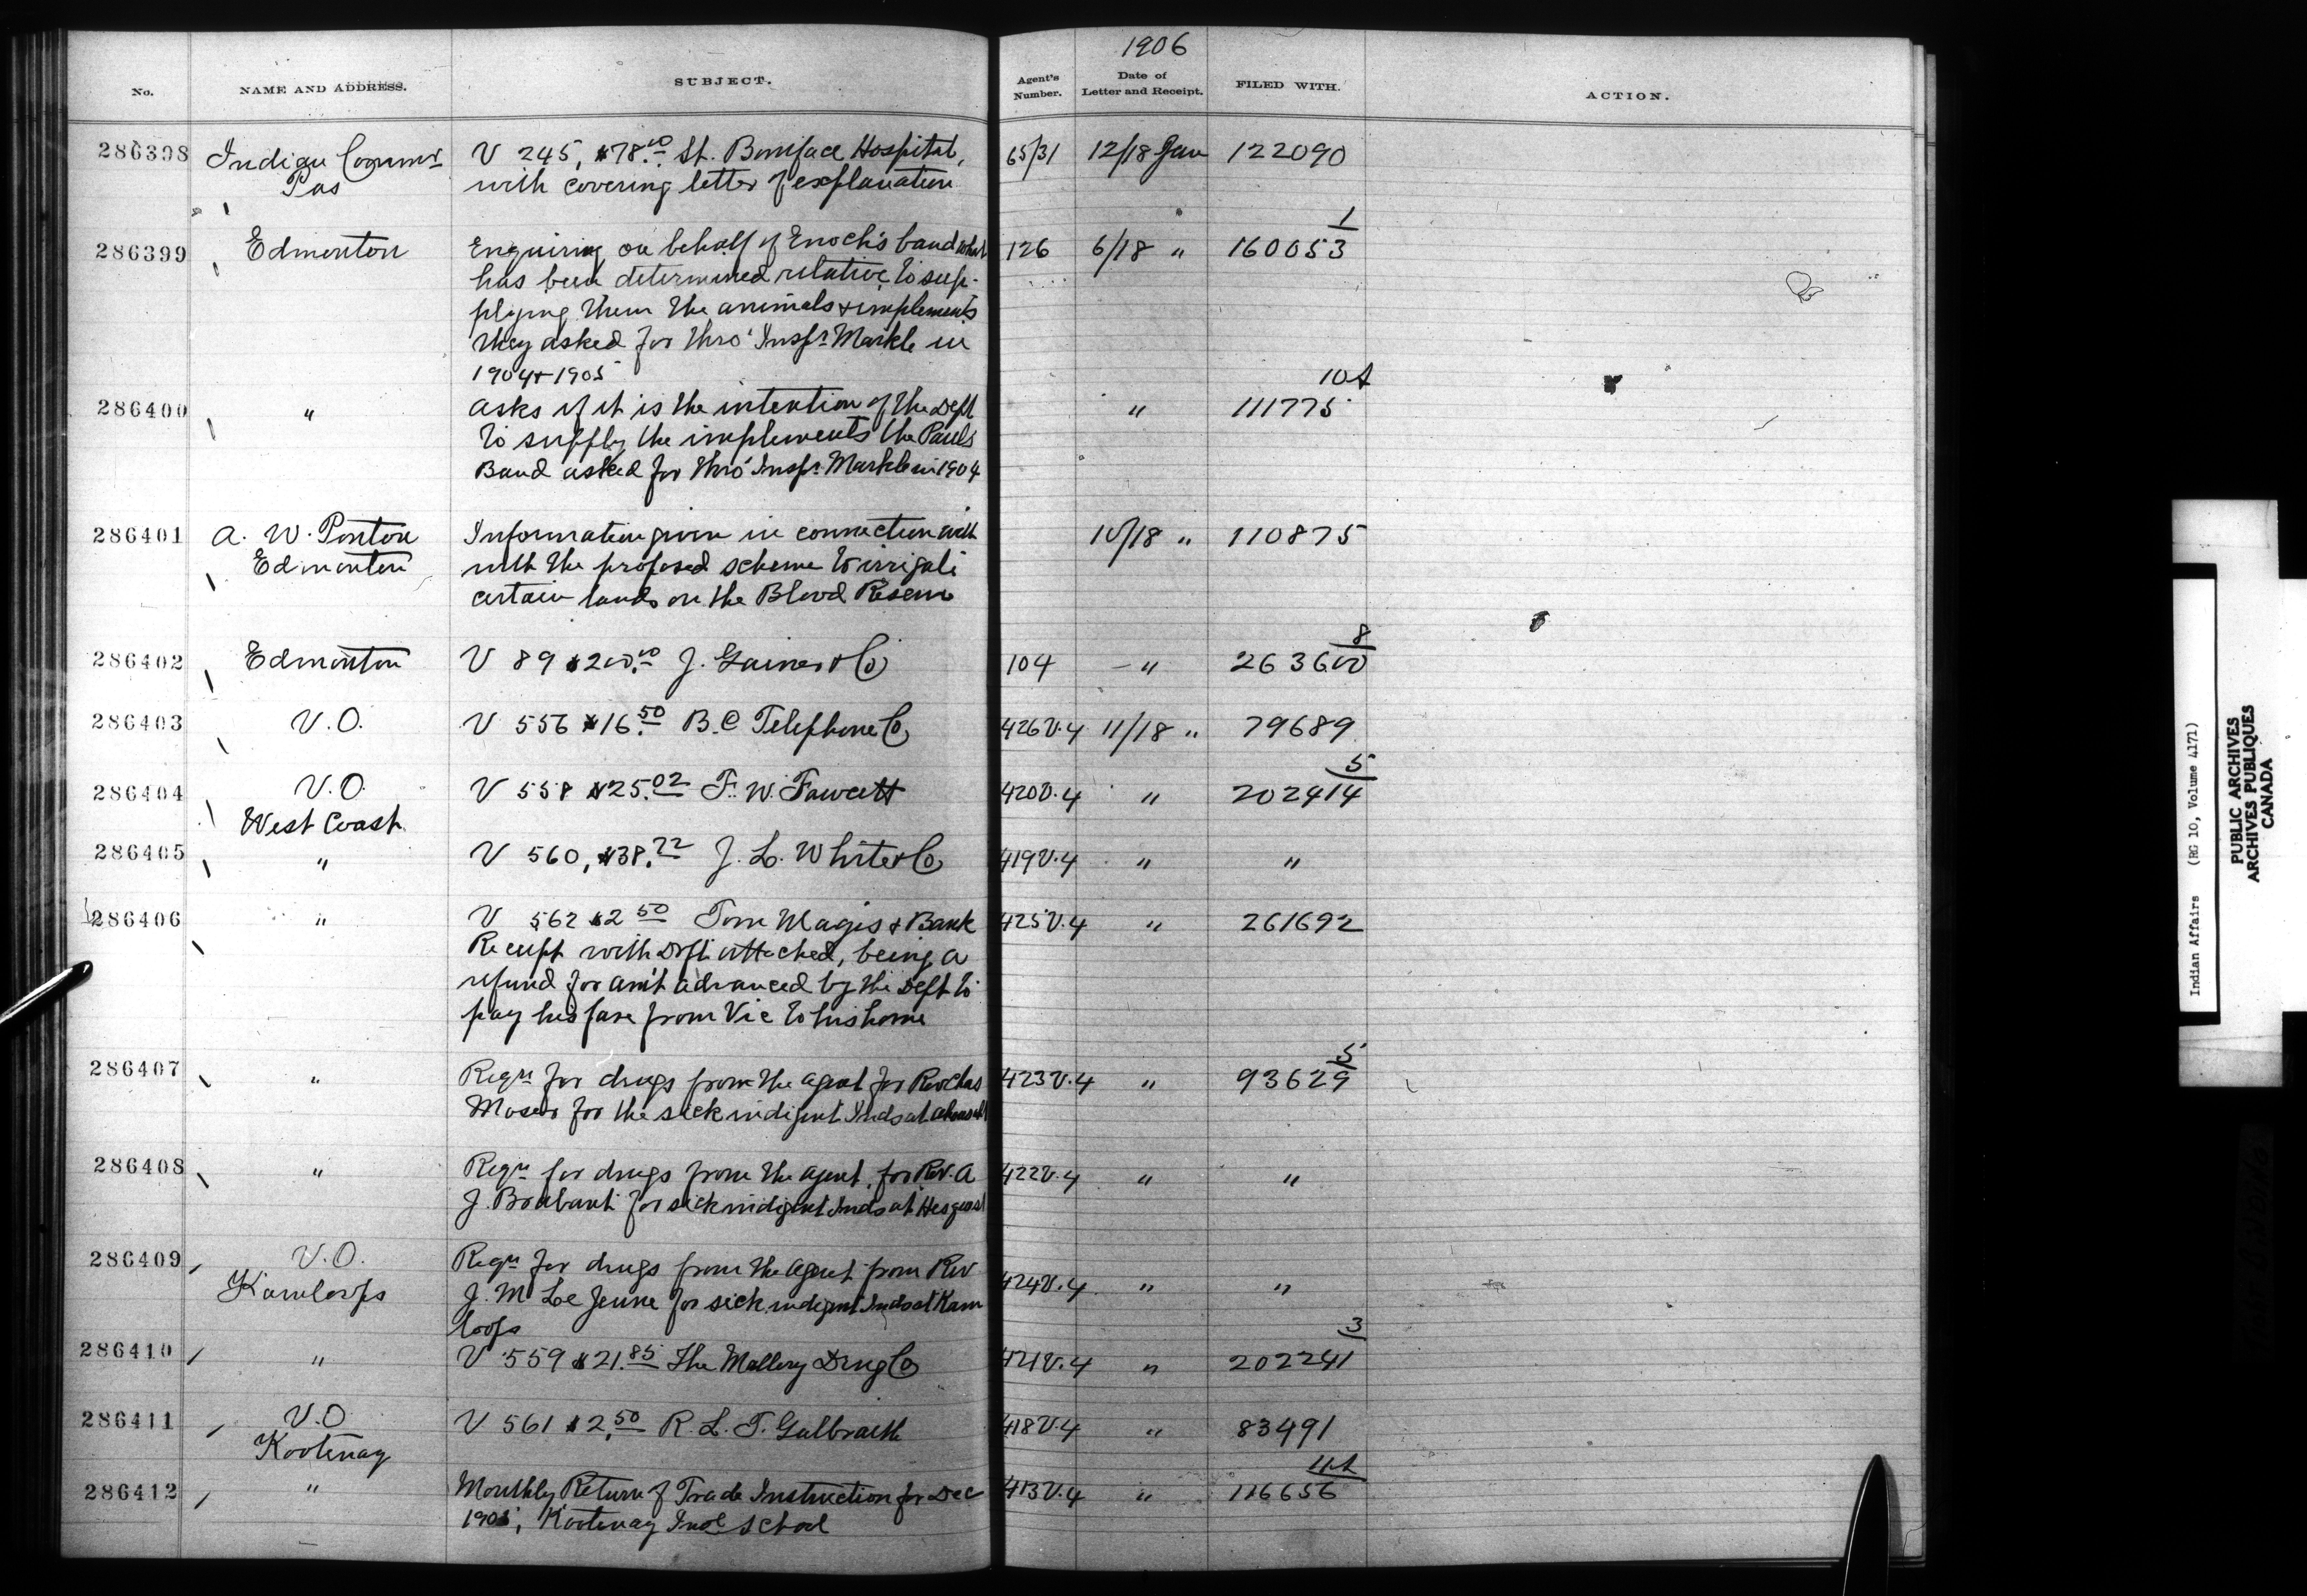 1906
No. NAME AND ADDRESS. SUBJECT. Agent's Number. Date of Letter and Receipt. FILED WITH. ACTION.
286398 Indian Commr V 245, $78.00 St. Boniface Hospital, 65/31 12/18 Jan 122090
Pas with covering letter of explanation
1
286399 Edmonton Enquiring on behalf of Enoch's band what 126 6/18 " 160053
has been determined relative to sup-
plying them the animals & implements
they asked for thro' Inspr. Markle in
1904 & 1905
10A
286400 " asks if it is the intention of the Dept " 111775
to supply the implements the Pauls
Band asked for thro' Inspr. Markle in 1904
286401 A. W. Ponton Information given in connection with 10/18 " 110875
Edmonton with the proposed scheme to irrigate
certain lands on the Blood Reserve
8
286402 Edmonton V 89 $200.00 J. Gainer & Co 104 - " 263600
286403 V.O. V 556 $16.50 B.C Telephone Co 426V.4 11/18 " 79689
5
286404 V.O. V 558 $25.02 F. W. Fawcett 420V.4 " 202414
West Coast
286405 " V 560, $38.72 J. L. White & Co 419V.4 " "
286406 " V 562 $2.50 Tom Magis & Bank 425V.4 " 261692
Receipt with Dft attached, being a
refund for am't advanced by the Dept to
pay his fare from Vic to his home
5
286407 " Reqn for drugs from the agent for Rev Chas 423V.4 " 93629
Moser for the sick indigent Inds at
286408 " Reqn for drugs from the agent, for Rev. A 422V.4 " "
J. Brabant for sick indigent Inds at Hesquiat
286409 V.O. Reqn for drugs from the agent from Rev
Kamloops J. M Le Jeune for sick indigent Inds at Kam 424V.4 " "
loops
3
286410 " V 559 $21.85 The Mallery Drug Co 421V.4 " 202241
286411 V.O V 561 $2.50 R. L. T. Galbraith 418V.4 " 83491
Kootenay
11A
286412 " Monthly Return of Trade Instruction for Dec 413V.4 " 116656
1905, Kootenay Indl School
Indian Affairs (RG 10, Volume 4171)
PUBLIC ARCHIVES
ARCHIVES PUBLIQUES
CANADA